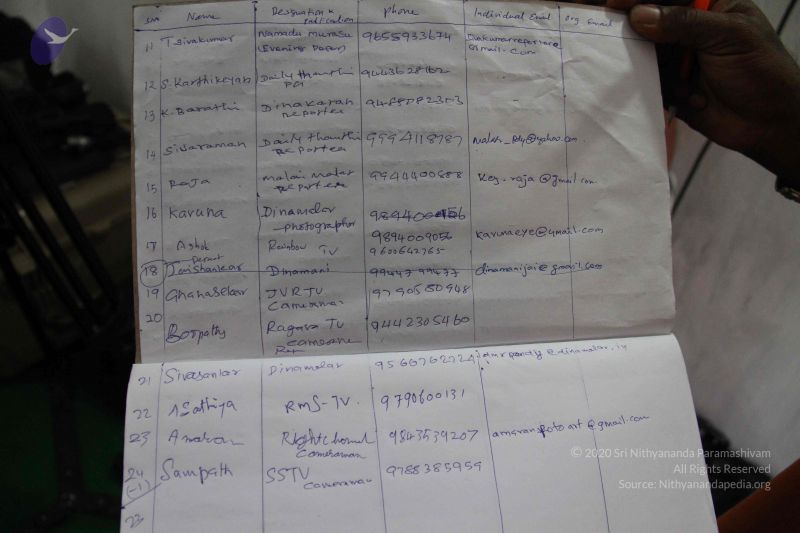 S.No Name Designation & Phone Individual Email Org Email
11 T Sivakumar Namadu murasu 9655933674
(Evening Paper) @gmail.com
12 S. Karthikeyan Daily thanthi
13 K. Barathi Dinakaran
Reporter
14 Sivaraman Daily thanthi 9994118787
Reporter
15 Raja malai malar 9944400888 Key.raja@gmail.com
Reporter
16 Karuna Dinamalar
photographer
17 Ashok Rainbow TV 9894009056 karunaeye@gmail.com
9600642765
18 Jaishankar Dinamani 99447 99477 dinamanijai@gmail.com
19 Ghanasekar JVR TV 9790580948
Cameraman
20 Boopathy Ragava TV 9442305460
21 Sivasankar Dinamalar 9566762224
22 A Sathiya RMS-TV. 9790600131
23 Amaran Right channel 9843539207 amaranfotoart@gmail.com
Cameraman
24 Sampath SSTV 9788385959
(-1) Cameraman
© 2020 Sri Nithyananda Paramashivam
All Rights Reserved
Source: Nithyanandapedia.org